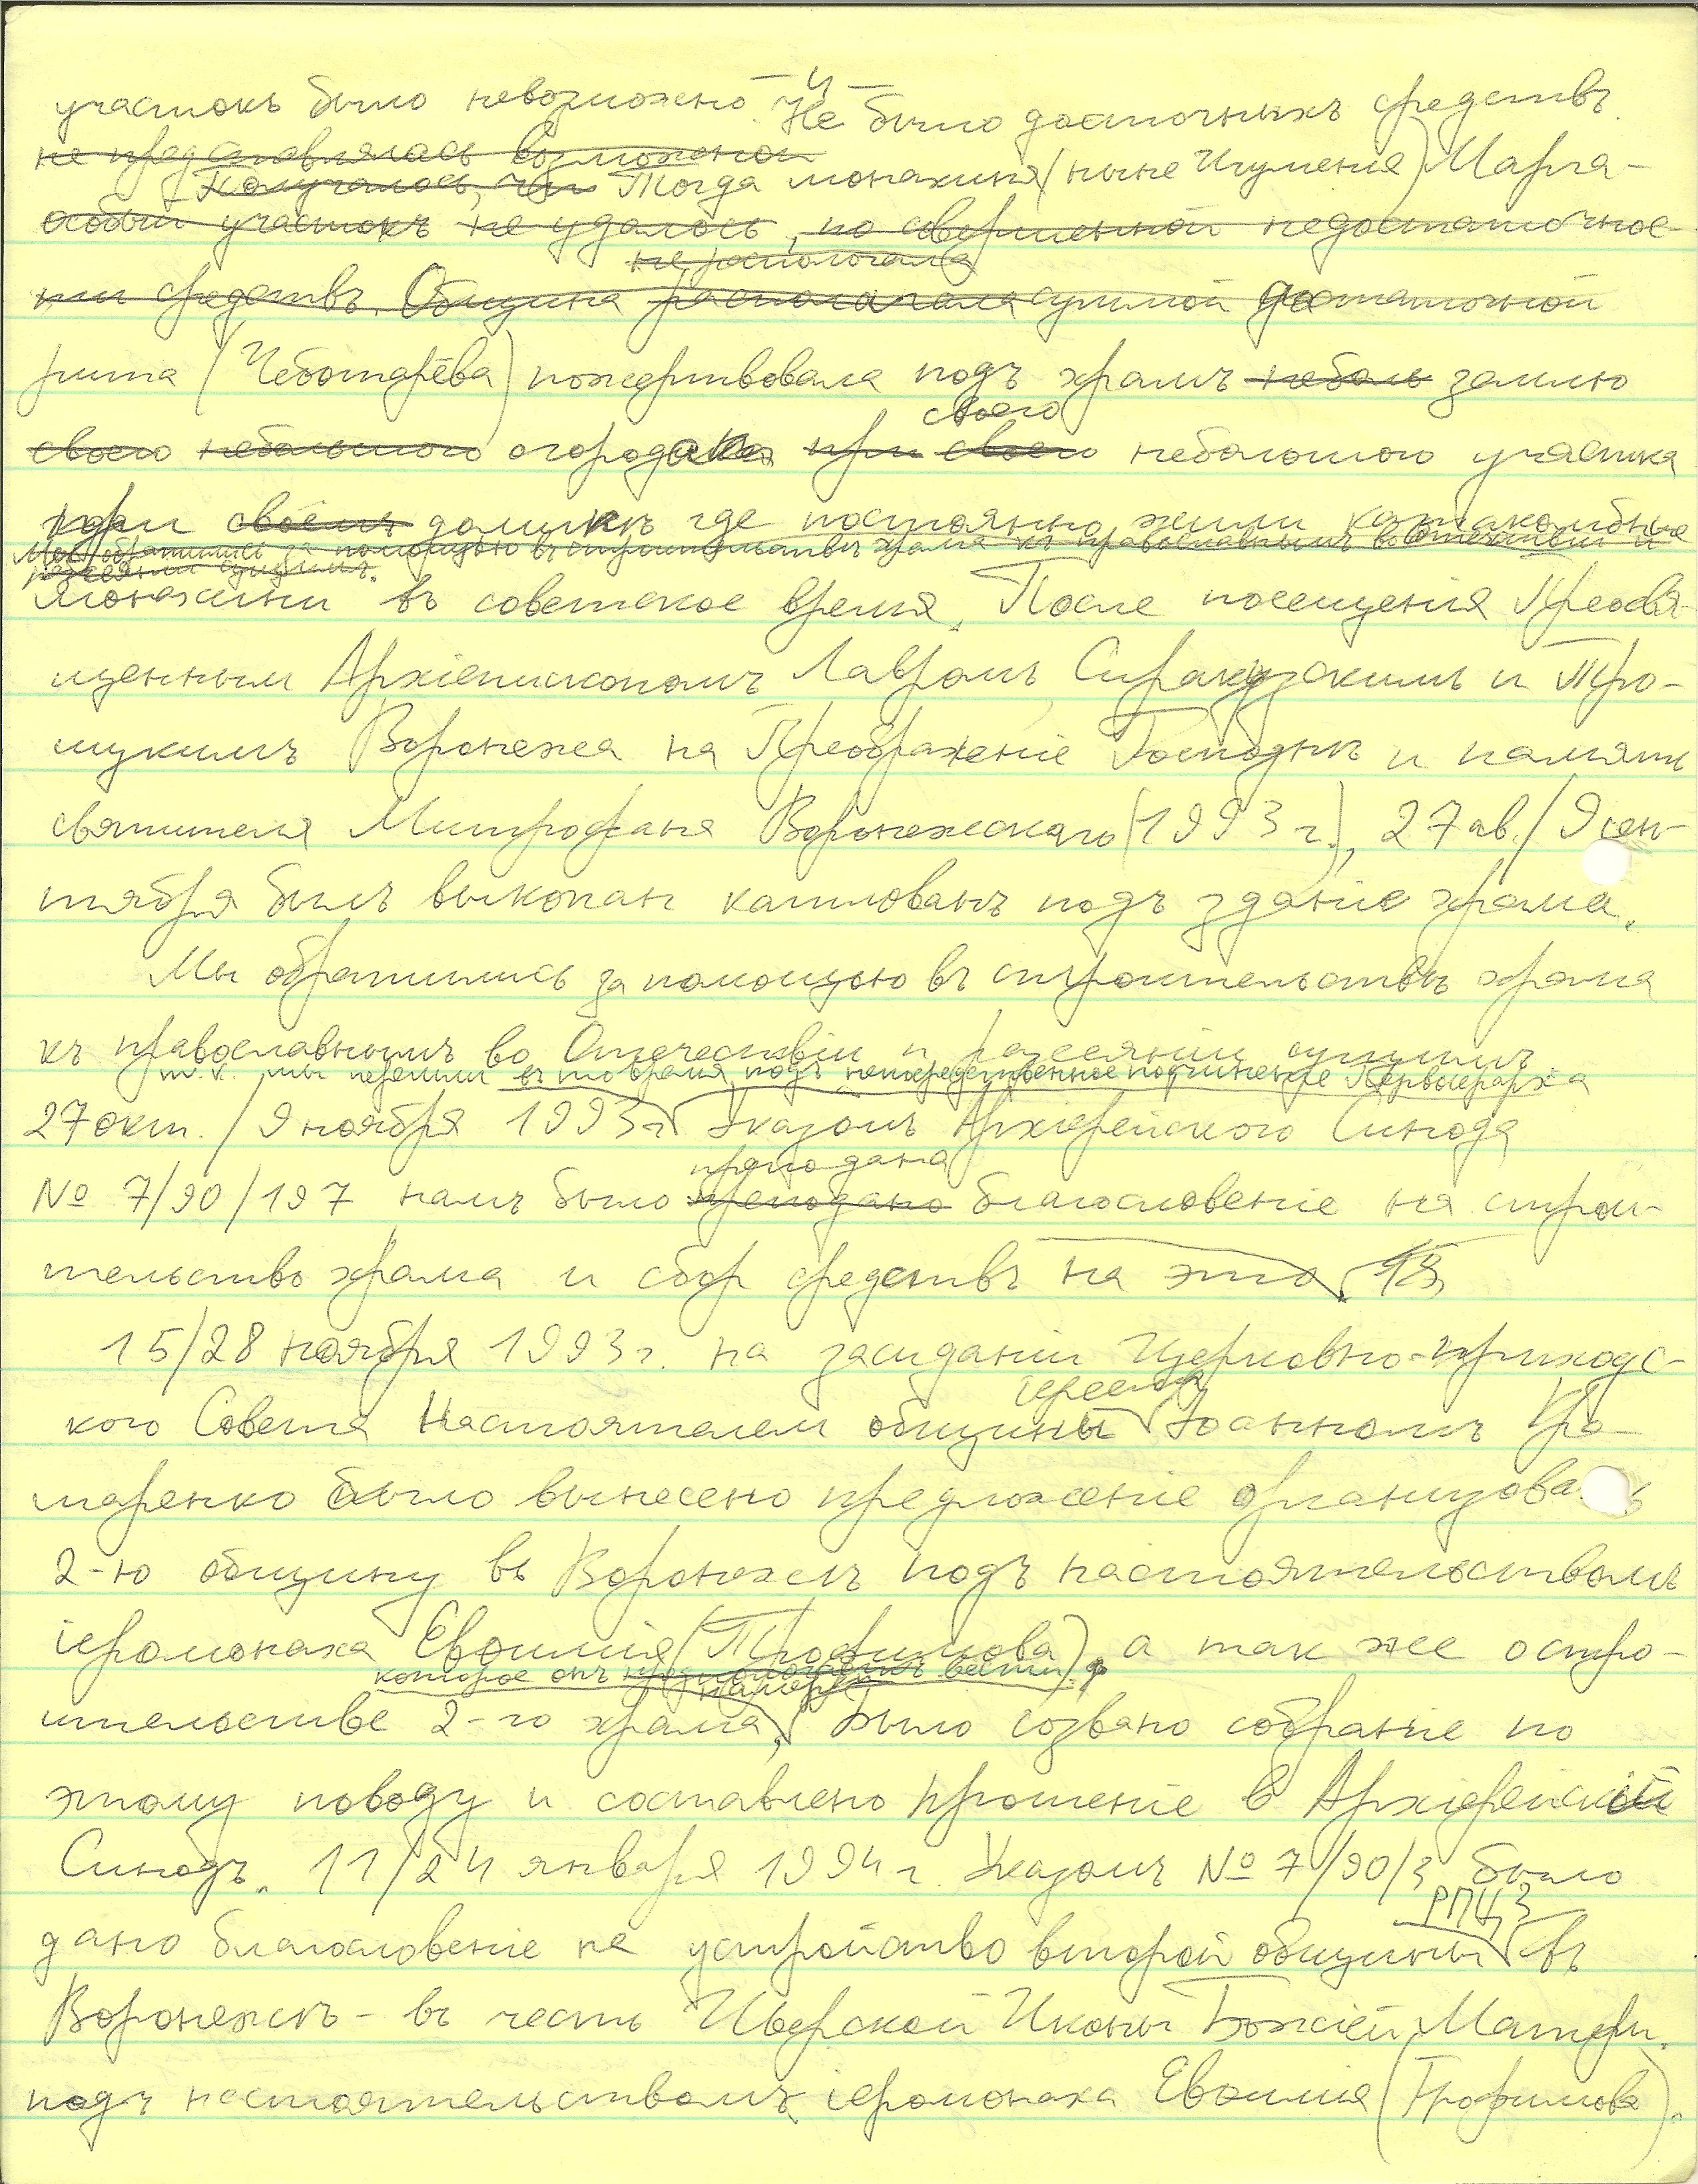 участокъ было невозможно – и –
Не было достаточныхъ средствъ.
не представлялась возможной
Получалось, что Тогда монахиня (ныне Игумения) Марга-
особый участокъ не удалось, по совершенной недостаточнос-
не располагала
ти средствъ. Община располагала суммой достаточной
рита (Чеботарёва) пожертвовала подъ храмъ неболь землю
своего
своего небольшого огорода при своего небольшого участка
при своёмъ домикѣ где постоянно жили катакомбные
Мы обратились за помощью въ строительствѣ храма къ православнымъ во Отечествіи и
разсеяніи сущимъ.
монахини въ советское время. После посещения Преосвя-
щенным Архіепископомъ Лавромъ Сиракузскимъ и Тро-
ицкимъ Воронежа на Преображеніе Господне и память
святителя Митрофана Воронежскаго (1993 г.), 27 ав./9 сен-
тября былъ выкопан котлованъ подъ зданіе храма.
Мы обратились за помощью въ строительствѣ храма
къ православнымъ во Отечествіи и разсеяніи сущимъ
т.к. мы перешли въ то время подъ непосредственное подчиненіе Первоиерарха
27 окт./9 ноября 1993 г. Указомъ Архіерейского Синода
преподана
№ 7/90/197 намъ было преподано благословеніе на строи-
тельство храма и сбор средствъ на это.
15/28 ноября 1993 г. на заседаніи Церковно-приходс-
іереемъ
кого Совета Настоятелем общины Іоанномъ Кра-
маренко было вынесено предложеніе организовать
2-ю общину въ Воронежѣ подъ настоятельствомъ
іеромонаха Евѳимія (Трофимова), а так же о стро-
которое онъ вести)
ительстве 2-го храма. Было созвано собраніе по
этому поводу и составлено прошеніе в Архіерейскій
Синодъ. 11/24 января 1994 г. Указомъ № 7/90/3 было
РПЦЗ
дано благословеніе на устройство второй общины въ
Воронежѣ – въ честь Иверской Иконы Божіей Матери
подъ настоятельствомъ іеромонаха Евѳимия (Трофимова).